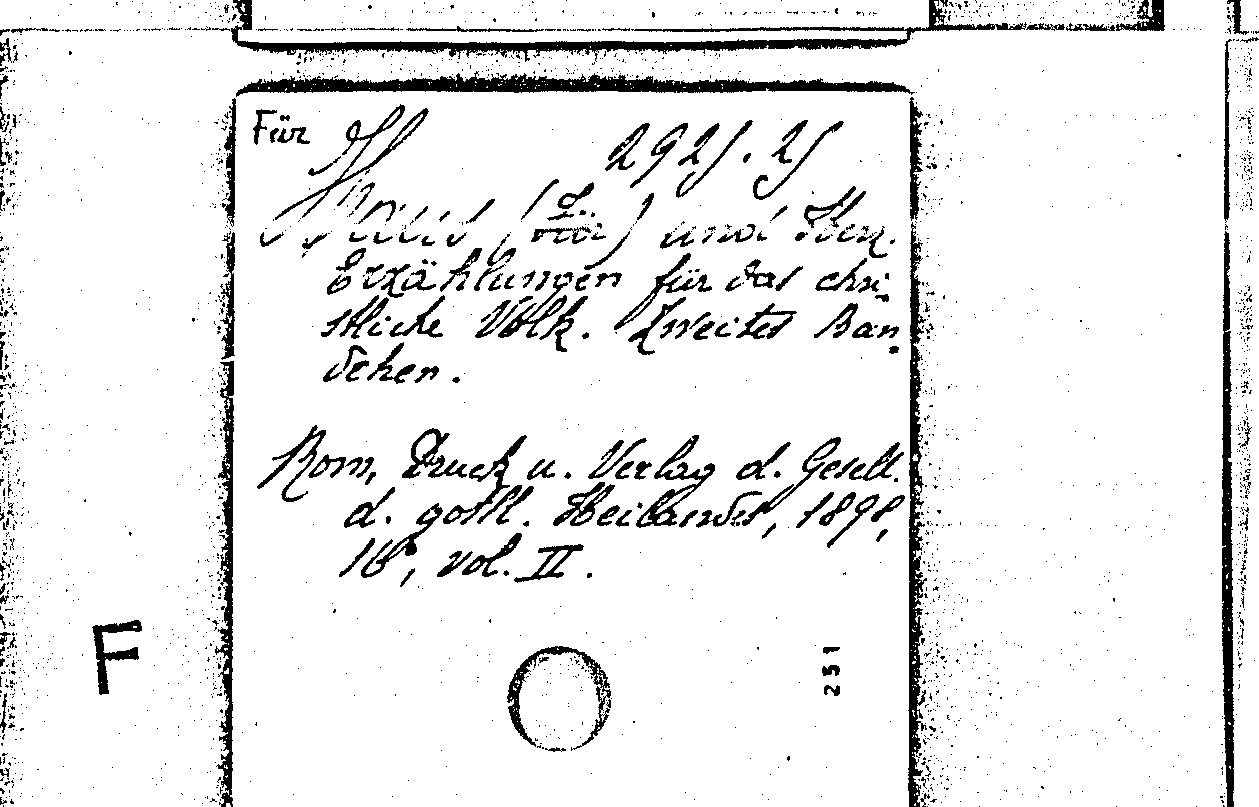 Für H 2925.25
Haus (für) und Herz.
Erzählungen für das chri-
stliche Volk. Zweites Bän-
dchen.
Rom, Druck u. Verlag d. Gesell.
d. gottl. Heilandes, 1898,
16°, vol. II.
F
251